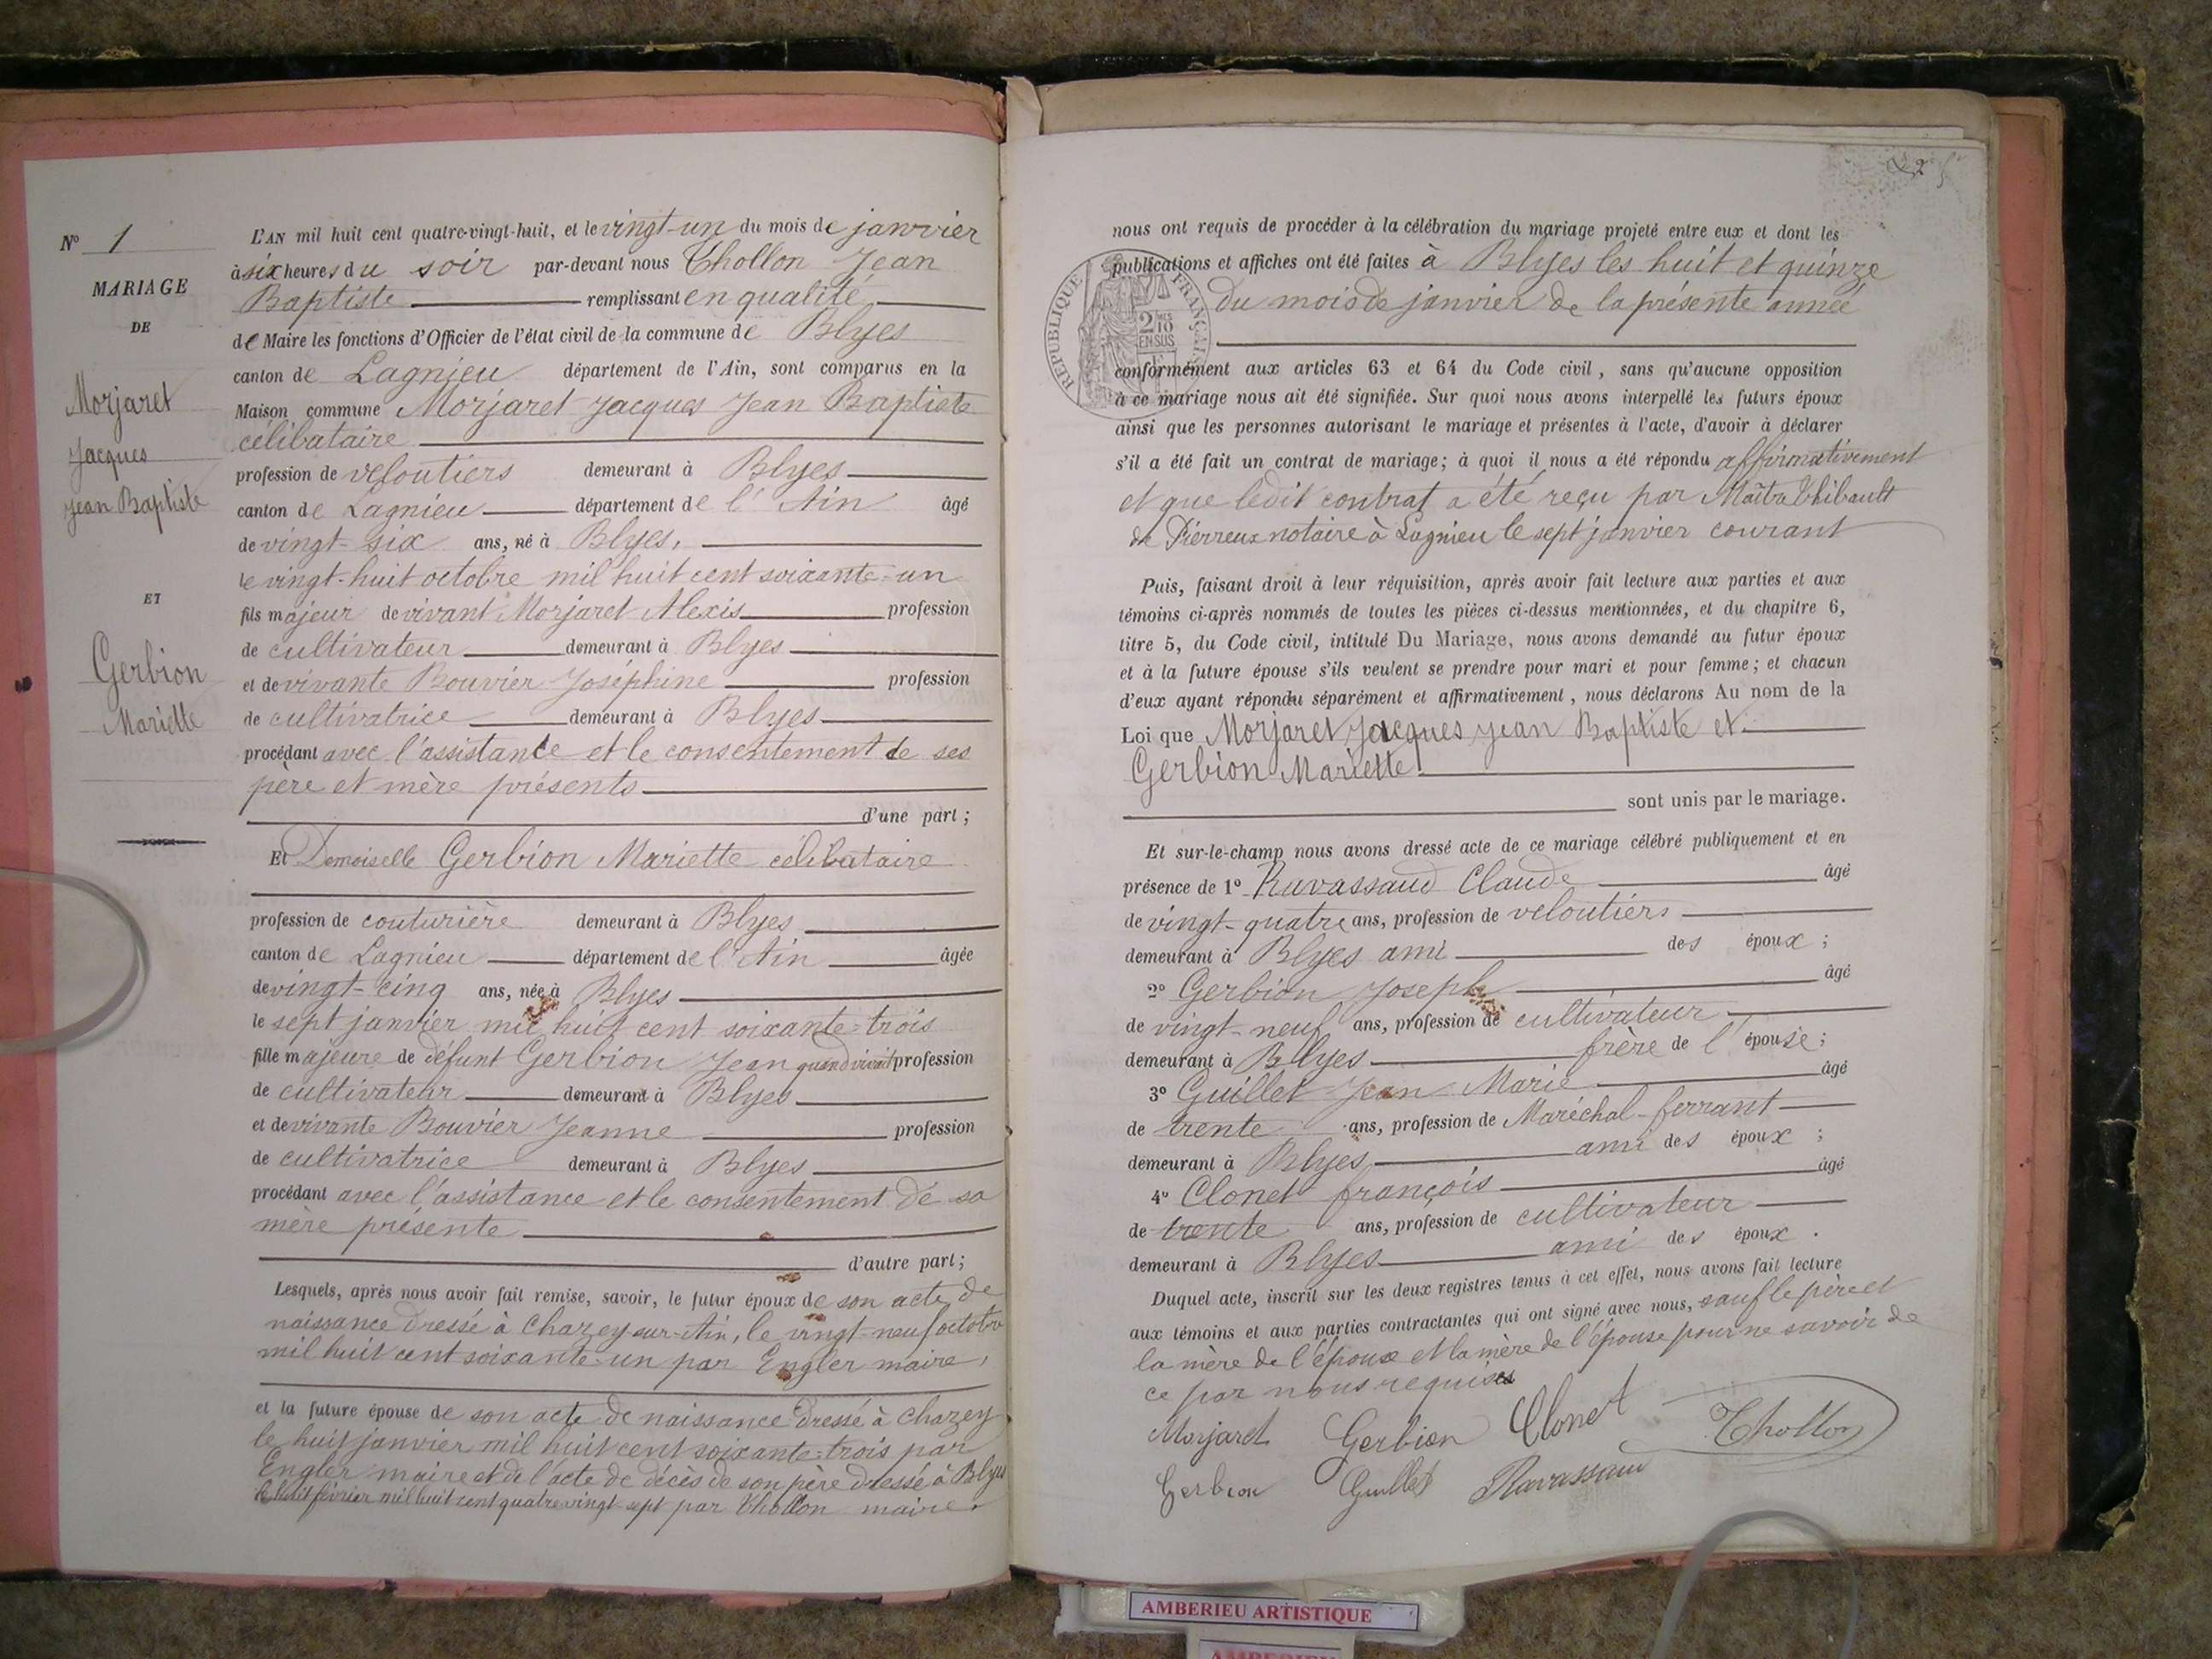 N° 1
MARIAGE
DE
Morjaret
Jacques
Jean Baptiste
ET
Gerbion
Mariette
L'AN mil huit cent quatre-vingt-huit, et le vingt-un du mois de janvier
à six heures du soir par-devant nous Thollon Jean
Baptiste remplissant en qualité
de Maire les fonctions d'Officier de l'état civil de la commune de Blyes
canton de Lagnieu département de l'Ain, sont comparus en la
Maison commune Morjaret Jacques Jean Baptiste
célibataire
profession de veloutiers demeurant à Blyes
canton de Lagnieu département de l'Ain âgé
de vingt-six ans, né à Blyes,
le vingt-huit octobre mil huit cent soixante-un
fils majeur de vivant Morjaret Alexis profession
de cultivateur demeurant à Blyes
et de vivante Bouvier Joséphine profession
de cultivatrice demeurant à Blyes
procédant avec l'assistance et le consentement de ses
père et mère présents
d'une part ;
Et Demoiselle Gerbion Mariette célibataire
profession de couturière demeurant à Blyes
canton de Lagnieu département de l'Ain âgée
de vingt-cinq ans, née à Blyes
le sept janvier mil huit cent soixante-trois
fille majeure de défunt Gerbion Jean quand vivait profession
de cultivateur demeurant à Blyes
et de vivante Bouvier Jeanne profession
de cultivatrice demeurant à Blyes
procédant avec l'assistance et le consentement de sa
mère présente
d'autre part ;
Lesquels, après nous avoir fait remise, savoir, le futur époux de son acte de
naissance dressé à Chazey-sur-Ain, le vingt-neuf octobre
mil huit cent soixante-un par Engler maire,
et la future épouse de son acte de naissance dressé à Chazey
le huit janvier mil huit cent soixante-trois par
Engler maire et de l'acte de décès de son père dressé à Blyes
le huit février mil huit cent quatre vingt-sept par Thollon maire.
nous ont requis de procéder à la célébration du mariage projeté entre eux et dont les
publications et affiches ont été faites à Blyes les huit et quinze
du mois de janvier de la présente année
RÉPUBLIQUE FRANÇAISE
2/10
EN SUS
conformément aux articles 63 et 64 du Code civil, sans qu'aucune opposition
à ce mariage nous ait été signifiée. Sur quoi nous avons interpellé les futurs époux
ainsi que les personnes autorisant le mariage et présentes à l'acte, d'avoir à déclarer
s'il a été fait un contrat de mariage; à quoi il nous a été répondu affirmativement
et que ledit contrat a été reçu par Maître Thibault
de Pierreux notaire à Lagnieu le sept janvier courant
Puis, faisant droit à leur réquisition, après avoir fait lecture aux parties et aux
témoins ci-après nommés de toutes les pièces ci-dessus mentionnées, et du chapitre 6,
titre 5, du Code civil, intitulé Du Mariage, nous avons demandé au futur époux
et à la future épouse s'ils veulent se prendre pour mari et pour femme ; et chacun
d'eux ayant répondu séparément et affirmativement, nous déclarons Au nom de la
Loi que Morjaret Jacques Jean Baptiste et
Gerbion Mariette
sont unis par le mariage.
Et sur-le-champ nous avons dressé acte de ce mariage célébré publiquement et en
présence de 1° Ravassaud Claude âgé
de vingt-quatre ans, profession de veloutiers
demeurant à Blyes ami des époux ;
2° Gerbion Joseph âgé
de vingt-neuf ans, profession de cultivateur
demeurant à Blyes frère de l'épouse ;
3° Guillet Jean Marie âgé
de trente ans, profession de Maréchal-ferrant
demeurant à Blyes ami des époux ;
4° Clonet françois âgé
de trente ans, profession de cultivateur
demeurant à Blyes ami des époux.
Duquel acte, inscrit sur les deux registres tenus à cet effet, nous avons fait lecture
aux témoins et aux parties contractantes qui ont signé avec nous, sauf le père et
la mère de l'époux et la mère de l'épouse pour ne savoir de
ce par nous requis
Morjaret Gerbion Clonet Thollon
Gerbion Guillet Ravassaud
AMBERIEU ARTISTIQUE
AMBERIEU